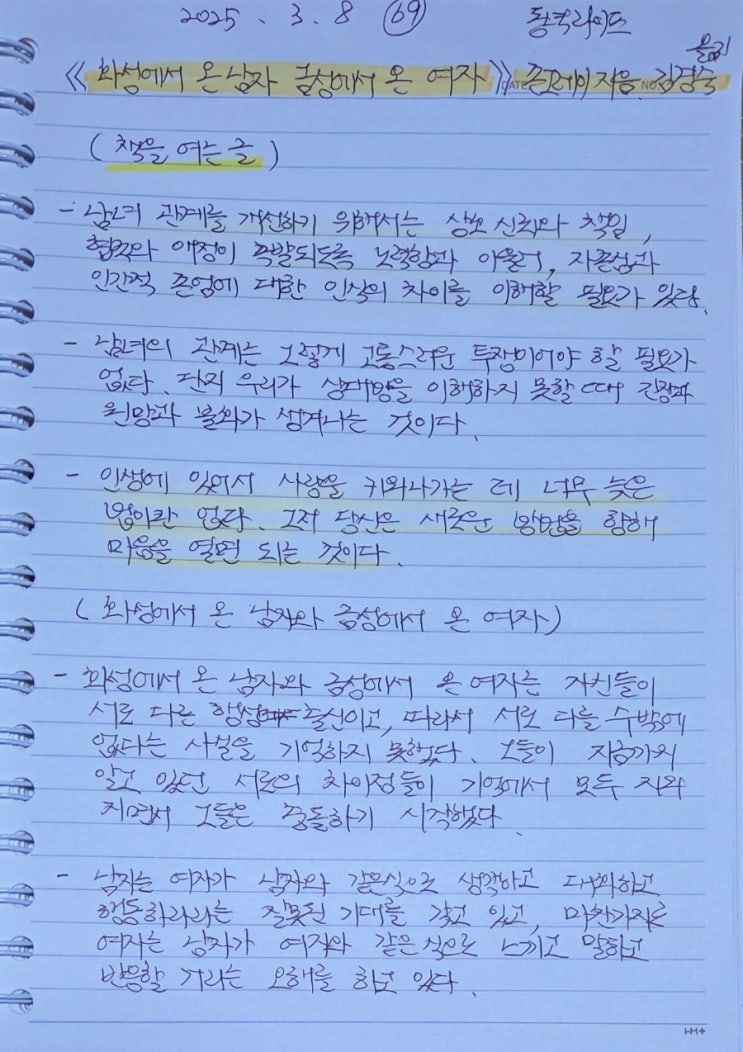 2025 . 3. 8 (69) 동국라이프
옮김
《화성에서 온 남자 금성에서 온 여자》 존그레이 지음. 김경숙
DATE NO.
(책을 여는 글)
- 남녀 관계를 개선하기 위해서는 상호 신뢰와 책임,
협조와 애정이 촉발되도록 노력함과 아울러, 자존심과
인간적 존엄에 대한 인식의 차이를 이해할 필요가 있다.
- 남녀의 관계는 그렇게 고통스러운 투쟁이어야 할 필요가
없다. 단지 우리가 상대방을 이해하지 못할 때 긴장과
원망과 불화가 생겨나는 것이다.
- 인생에 있어서 사랑을 키워나가는 데 너무 늦은
법이란 없다. 그저 당신은 새로운 방법을 향해
마음을 열면 되는 것이다.
(화성에서 온 남자와 금성에서 온 여자)
- 화성에서 온 남자와 금성에서 온 여자는 자신들이
서로 다른 행성 출신이고, 따라서 서로 다를 수밖에
없다는 사실을 기억하지 못했다. 그들이 지금까지
알고 있던 서로의 차이점들이 기억에서 모두 지워
지면서 그들은 충돌하기 시작했다.
- 남자는 여자가 남자와 같은식으로 생각하고 대화하고
행동하리라는 잘못된 기대를 갖고 있고, 마찬가지로
여자는 남자가 여자와 같은 식으로 느끼고 말하고
반응할 거라는 오해를 하고 있다.